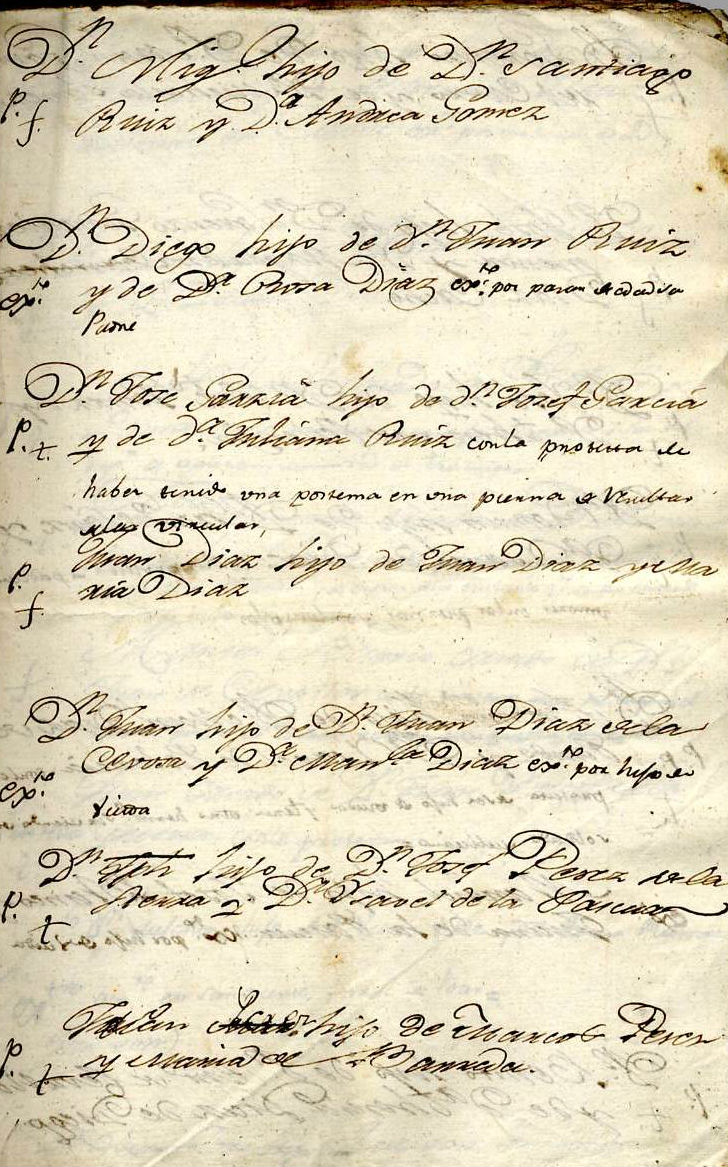 Dn. Migl. hijo de Dn. Santiago
P. f. Ruiz y Da. Andrea Gomez
Dn. Diego hijo de dn. Juan Ruiz
exto. y de Da. Rosa Diaz exto. por pasar de edad su
Padre
Dn. Jose Garzia hijo de dn. Josef Garcia
P. t. y de da. Juliana Ruiz con la protesta de
haber tenido una postema en una pierna de
Juan Diaz hijo de Juan Diaz y Ma
P. f. ria Diaz
Dn. Juan hijo de Dn. Juan Diaz de la
exto. y Da. Manla. Diaz exto. por hijo de
viuda
Dn. hijo de Dn. Josef Perez de la
P. t. y Da. Ysavel de la Pascua
Julian hijo de Marcos Perez
P. t. y Maria de Barreda.